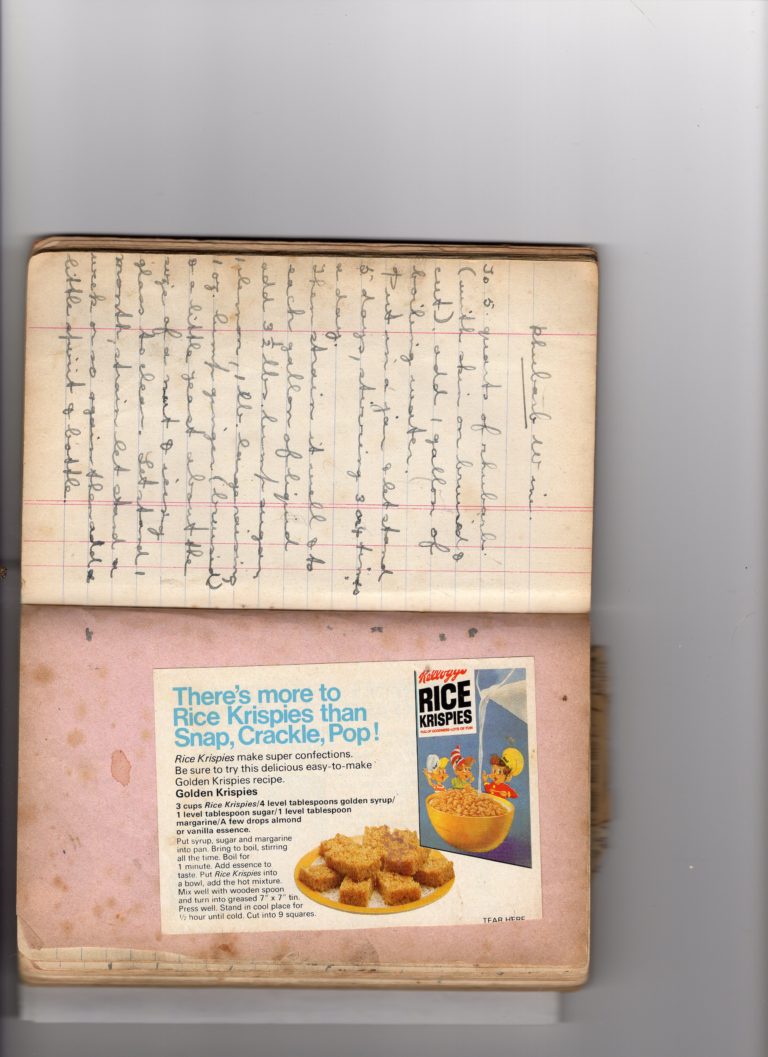 Rhubarb Wine.
To 5 quarts of rhubarb.
(with skin on bruised &
cut). add 1 gallon of
boiling water.
Put in a jar & let stand
5 days, stirring 3 or 4 times
a day.
Then strain it well & to
each gallon of liquid
add 3½ lbs. lump sugar
1 lemon, 1 lb. large raisins
1 oz. lump ginger (bruised)
& a little yeast about the
size of a nut &
glass to clear. Let stand 1
month, strain let stand a
week or so again then add a
little spirit & bottle.
There's more to
Rice Krispies than
Snap, Crackle, Pop!
Rice Krispies make super confections.
Be sure to try this delicious easy-to-make
Golden Krispies recipe.
Golden Krispies
3 cups Rice Krispies/4 level tablespoons golden syrup/
1 level tablespoon sugar/1 level tablespoon
margarine/A few drops almond
or vanilla essence.
Put syrup, sugar and margarine
into pan. Bring to boil, stirring
all the time. Boil for
1 minute. Add essence to
taste. Put Rice Krispies into
a bowl, add the hot mixture.
Mix well with wooden spoon
and turn into greased 7" x 7" tin.
Press well. Stand in cool place for
½ hour until cold. Cut into 9 squares.
Kellogg's
RICE
KRISPIES
FULL OF GOODNESS-LOTS OF FUN!
TEAR HERE